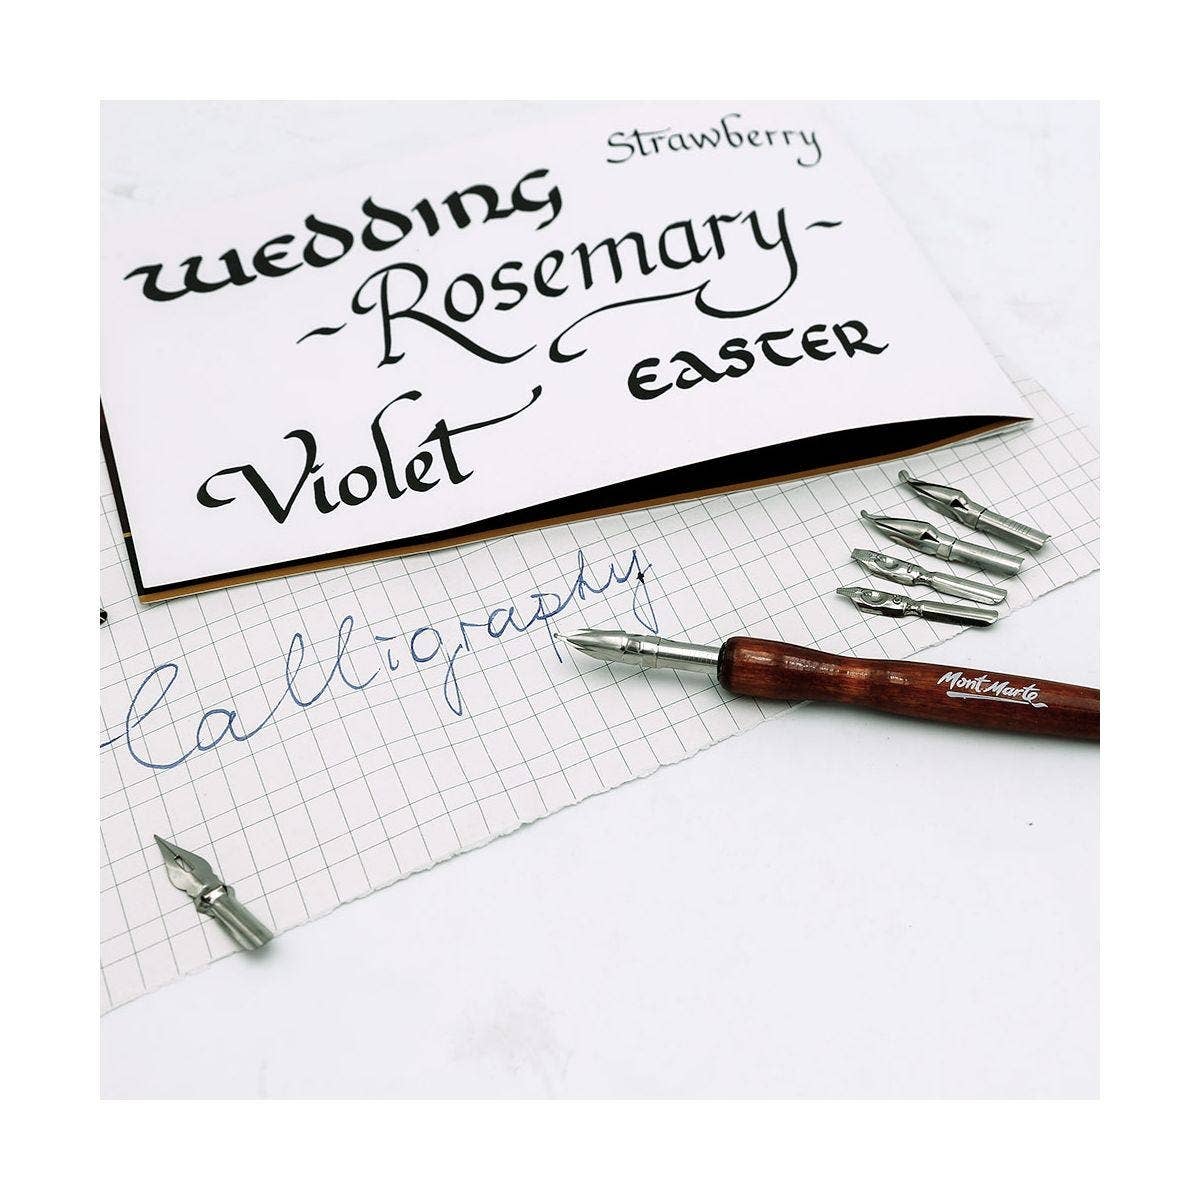 Strawberry
WEDDING
~Rosemary~
EASTER
Violet
Calligraphy
Mont Marte